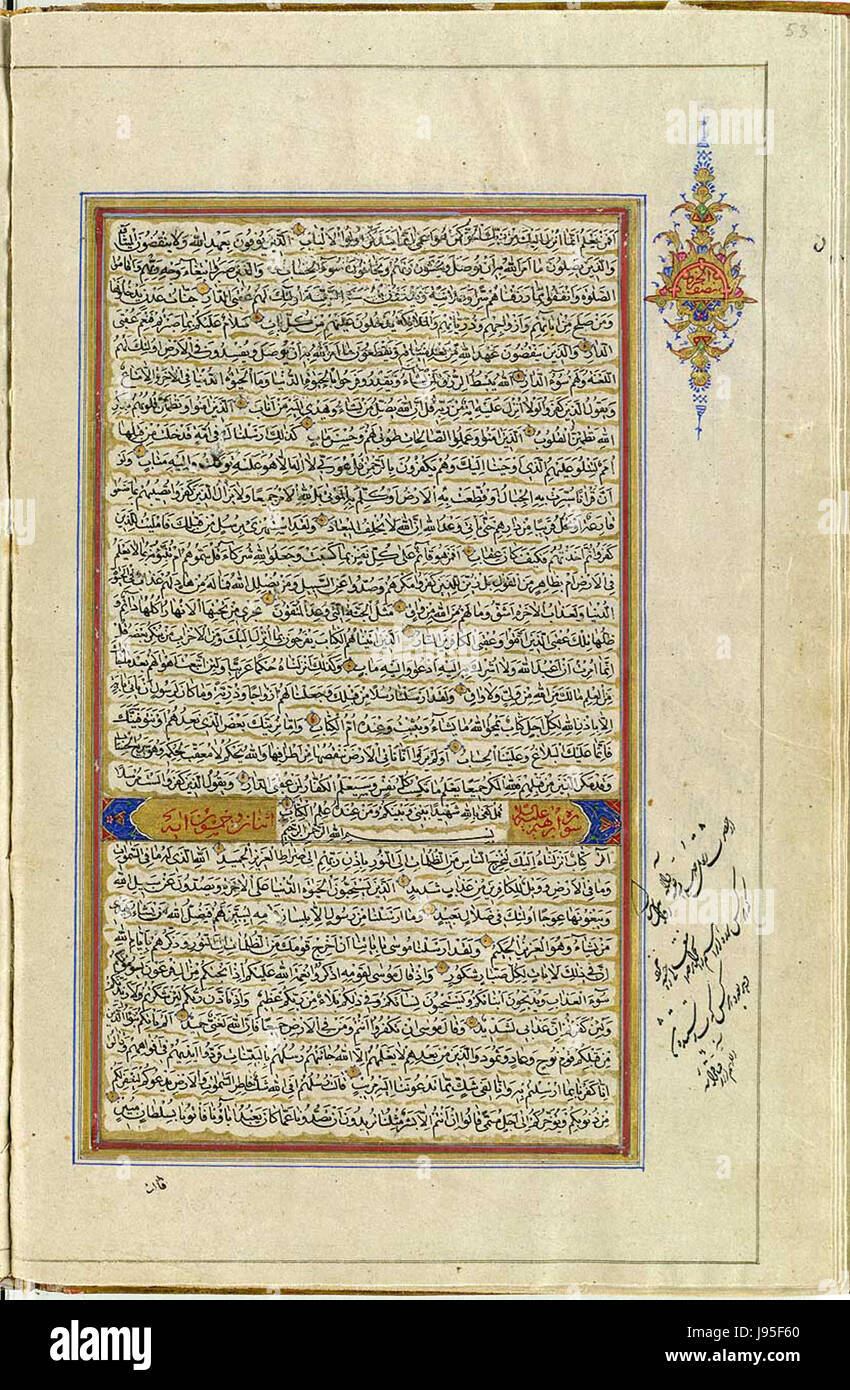 افمن يعلم انما انزل اليك من ربك الحق كمن هو اعمى انما يتذكر اولوا الالباب الذين يوفون بعهد الله ولا ينقضون الميثاق
والذين يصلون ما امر الله به ان يوصل ويخشون ربهم ويخافون سوء الحساب والذين صبروا ابتغاء وجه ربهم واقاموا
الصلوة وانفقوا مما رزقناهم سرا وعلانية ويدرؤن بالحسنة السيئة اولئك لهم عقبى الدار جنات عدن يدخلونها
ومن صلح من ابائهم وازواجهم وذرياتهم والملائكة يدخلون عليهم من كل باب سلام عليكم بما صبرتم فنعم عقبى
الدار والذين ينقضون عهد الله من بعد ميثاقه ويقطعون ما امر الله به ان يوصل ويفسدون في الارض اولئك لهم
اللعنة ولهم سوء الدار الله يبسط الرزق لمن يشاء ويقدر وفرحوا بالحيوة الدنيا وما الحيوة الدنيا في الاخرة الا متاع
ويقول الذين كفروا لولا انزل عليه اية من ربه قل ان الله يضل من يشاء ويهدي اليه من اناب الذين امنوا وتطمئن قلوبهم بذكر
الله تطمئن القلوب الذين امنوا وعملوا الصالحات طوبى لهم وحسن ماب كذلك ارسلناك في امة قد خلت من قبلها
امم لتتلوا عليهم الذي اوحينا اليك وهم يكفرون بالرحمن قل هو ربي لا اله الا هو عليه توكلت واليه متاب ولو
ان قرانا سيرت به الجبال او قطعت به الارض او كلم به الموتى بل لله الامر جميعا ولا يزال الذين كفروا تصيبهم بما صنعوا
قارعة او تحل قريبا من دارهم حتى ياتي وعد الله ان الله لا يخلف الميعاد ولقد استهزئ برسل من قبلك فامليت للذين
كفروا ثم اخذتهم فكيف كان عقاب افمن هو قائم على كل نفس بما كسبت وجعلوا لله شركاء قل سموهم ام تنبؤنه بما لا يعلم
في الارض ام بظاهر من القول بل زين للذين كفروا مكرهم وصدوا عن السبيل ومن يضلل الله فما له من هاد لهم عذاب في الحيوة
الدنيا ولعذاب الاخرة اشق وما لهم من الله من واق مثل الجنة التي وعد المتقون تجري من تحتها الانهار اكلها دائم و
ظلها تلك عقبى الذين اتقوا وعقبى الكافرين النار والذين اتيناهم الكتاب يفرحون بما انزل اليك ومن الاحزاب من ينكر بعضه قل
انما امرت ان اعبد الله ولا اشرك به اليه ادعوا واليه ماب وكذلك انزلناه حكما عربيا ولئن اتبعت اهواءهم بعد ما جاءك
من العلم ما لك من الله من ولي ولا واق ولقد ارسلنا رسلا من قبلك وجعلنا لهم ازواجا وذرية وما كان لرسول ان ياتي باية
الا باذن الله لكل اجل كتاب يمحوا الله ما يشاء ويثبت وعنده ام الكتاب واما نرينك بعض الذي نعدهم او نتوفينك
فانما عليك البلاغ وعلينا الحساب اولم يروا انا ناتي الارض ننقصها من اطرافها والله يحكم لا معقب لحكمه وهو سريع الحساب
وقد مكر الذين من قبلهم فلله المكر جميعا يعلم ما تكسب كل نفس وسيعلم الكفار لمن عقبى الدار ويقول الذين كفروا لست مرسلا
قل كفى بالله شهيدا بيني وبينكم ومن عنده علم الكتاب
سورة ابرهيم عليه
اثنان وخمسون اية
بسم الله الرحمن الرحيم
الر كتاب انزلناه اليك لتخرج الناس من الظلمات الى النور باذن ربهم الى صراط العزيز الحميد الله الذي له ما في السموات
وما في الارض وويل للكافرين من عذاب شديد الذين يستحبون الحيوة الدنيا على الاخرة ويصدون عن سبيل الله
ويبغونها عوجا اولئك في ضلال بعيد وما ارسلنا من رسول الا بلسان قومه ليبين لهم فيضل الله من يشاء ويهدي
من يشاء وهو العزيز الحكيم ولقد ارسلنا موسى باياتنا ان اخرج قومك من الظلمات الى النور وذكرهم بايام الله
ان في ذلك لايات لكل صبار شكور واذ قال موسى لقومه اذكروا نعمة الله عليكم اذ انجيكم من ال فرعون يسومونكم
سوء العذاب ويذبحون ابناءكم ويستحيون نساءكم وفي ذلكم بلاء من ربكم عظيم واذ تاذن ربكم لئن شكرتم لازيدنكم
ولئن كفرتم ان عذابي لشديد وقال موسى ان تكفروا انتم ومن في الارض جميعا فان الله لغني حميد الم ياتكم نبؤا الذين
من قبلكم قوم نوح وعاد وثمود والذين من بعدهم لا يعلمهم الا الله جاءتهم رسلهم بالبينات فردوا ايديهم في افواههم وقالوا
انا كفرنا بما ارسلتم به وانا لفي شك مما تدعوننا اليه مريب قالت رسلهم افي الله شك فاطر السموات والارض يدعوكم ليغفر لكم
من ذنوبكم ويؤخركم الى اجل مسمى قالوا ان انتم الا بشر مثلنا تريدون ان تصدونا عما كان يعبد اباؤنا فاتونا بسلطان مبين
53
alamy
Image ID: J95F60
www.alamy.com